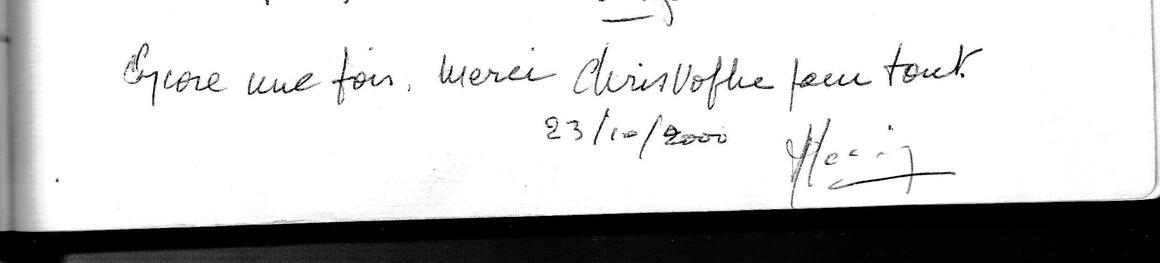 Encore une fois, merci Christophe pour tout.
23/10/2000